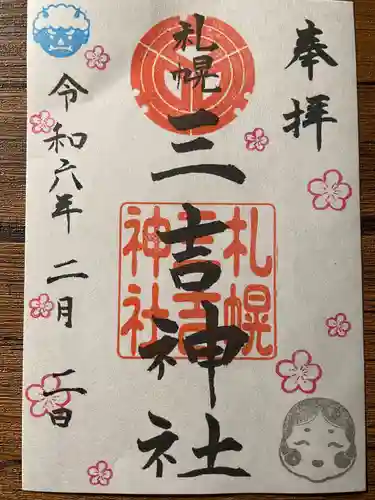 奉拝
札幌
三吉神社
札幌
三吉
神社
令和六年 二月 二日